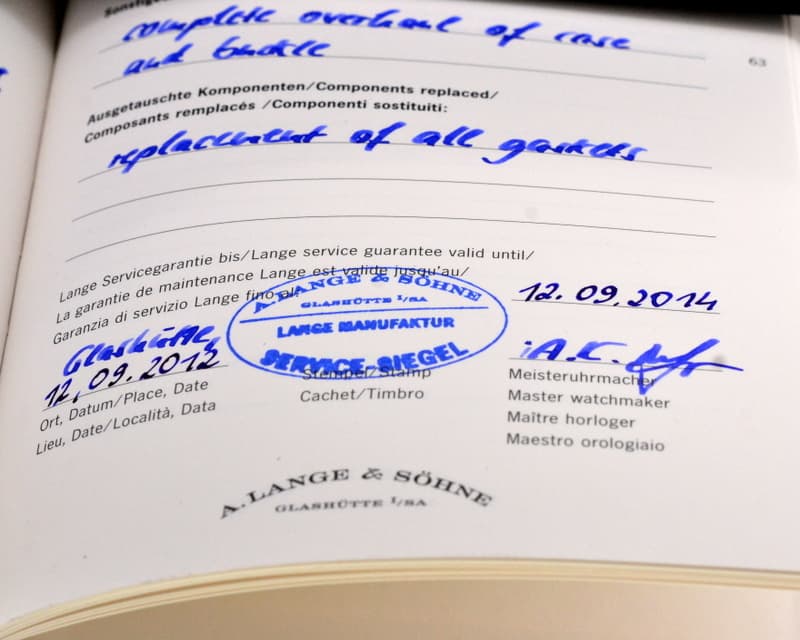 complete overhaul of case
63
and buckle
Ausgetauschte Komponenten/Components replaced/
Composants remplacés /Componenti sostituiti:
replacement of all gaskets
Lange Servicegarantie bis/Lange service guarantee valid until/
La garantie de maintenance Lange est valide jusqu'au/
Garanzia di servizio Lange fino al:
12.09.2014
A. LANGE & SÖHNE
GLASHÜTTE I/SA
LANGE MANUFAKTUR
SERVICE-SIEGEL
Glashütte,
12.09.2012
i.A.
Ort, Datum/Place, Date
Lieu, Date/Località, Data
Stempel/Stamp
Cachet/Timbro
Meisteruhrmacher
Master watchmaker
Maître horloger
Maestro orologiaio
A. LANGE & SÖHNE
GLASHÜTTE I/SA